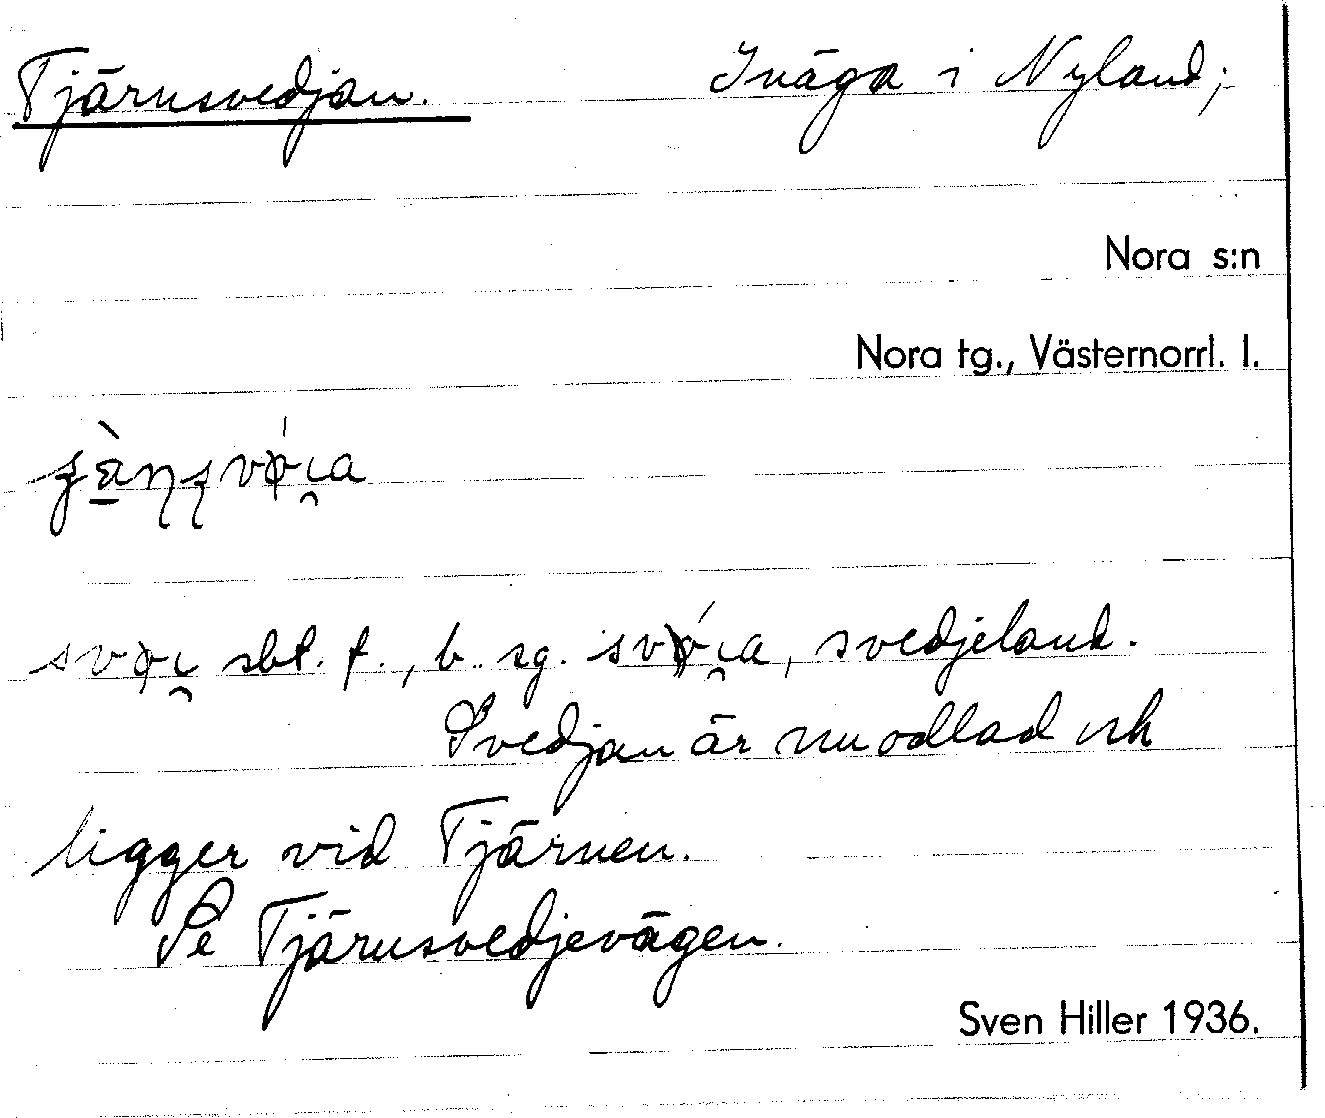 Tjärnsvedjan. Inäga i Nyland;
Nora s:n
Nora tg., Västernorrl. l.
sbt. f., b. sg. , svedjeland.
Svedjan är nu odlad och
ligger vid Tjärnen.
Se Tjärnsvedjevägen.
Sven Hiller 1936.